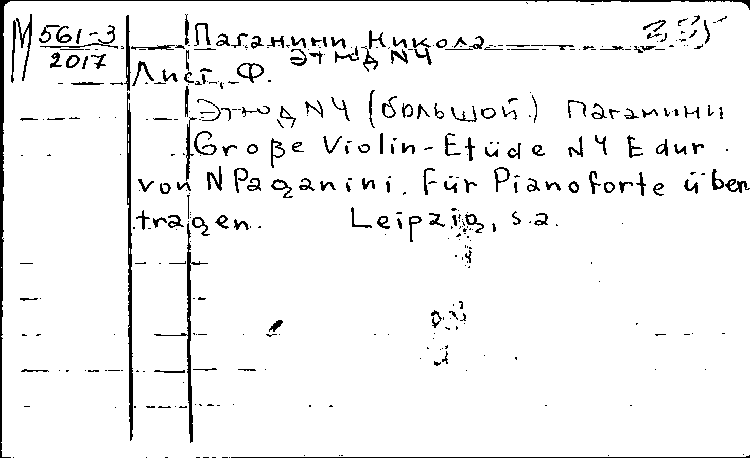 М 561-3 Паганини Никола 335
2017 Этюд N4
Лист, Ф.
Этюд N4 (большой) Паганини
Große Violin-Etüde N4 E dur.
von N Paganini. Für Pianoforte über
tragen. Leipzig, s.a.